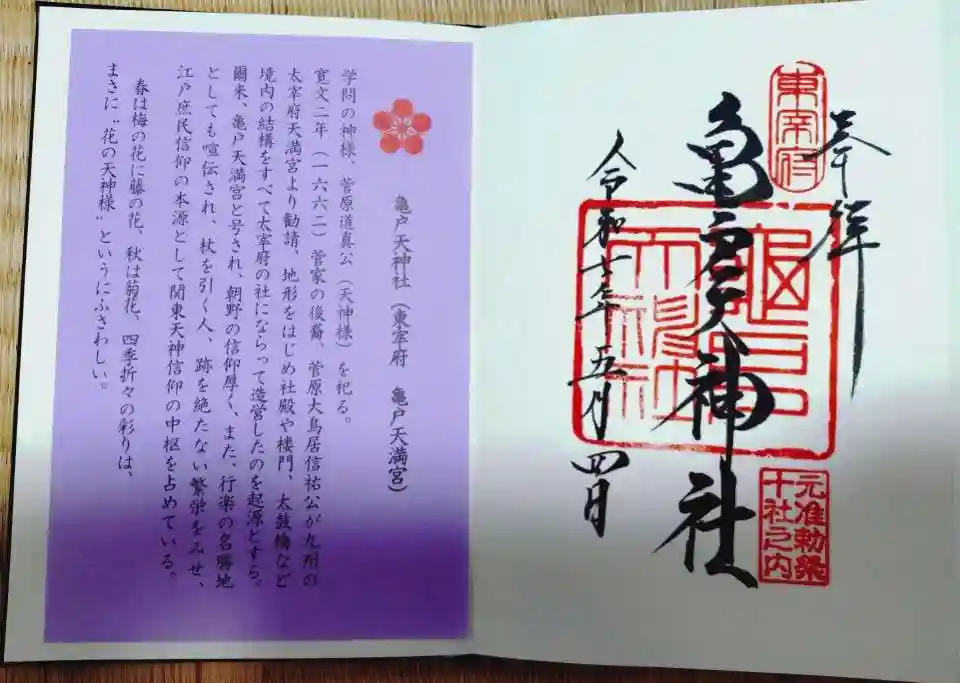 奉拝
東宰府
亀戸天神社
亀戸
天神社
元准勅祭
十社之内
令和七年五月四日
亀戸天神社（東宰府　亀戸天満宮）
学問の神様、菅原道真公（天神様）を祀る。
寛文二年（一六六二）菅家の後裔、菅原大鳥居信祐公が九州の
太宰府天満宮より勧請、地形をはじめ社殿や楼門、太鼓橋など
境内の結構をすべて太宰府の社にならって造営したのを起源とする。
爾来、亀戸天満宮と号され、朝野の信仰厚く、また、行楽の名勝地
としても喧伝され、杖を引く人、跡を絶たない繁栄をみせ、
江戸庶民信仰の本源として関東天神信仰の中枢を占めている。
春は梅の花に藤の花、秋は菊花、四季折々の彩りは、
まさに〝花の天神様〟というにふさわしい。